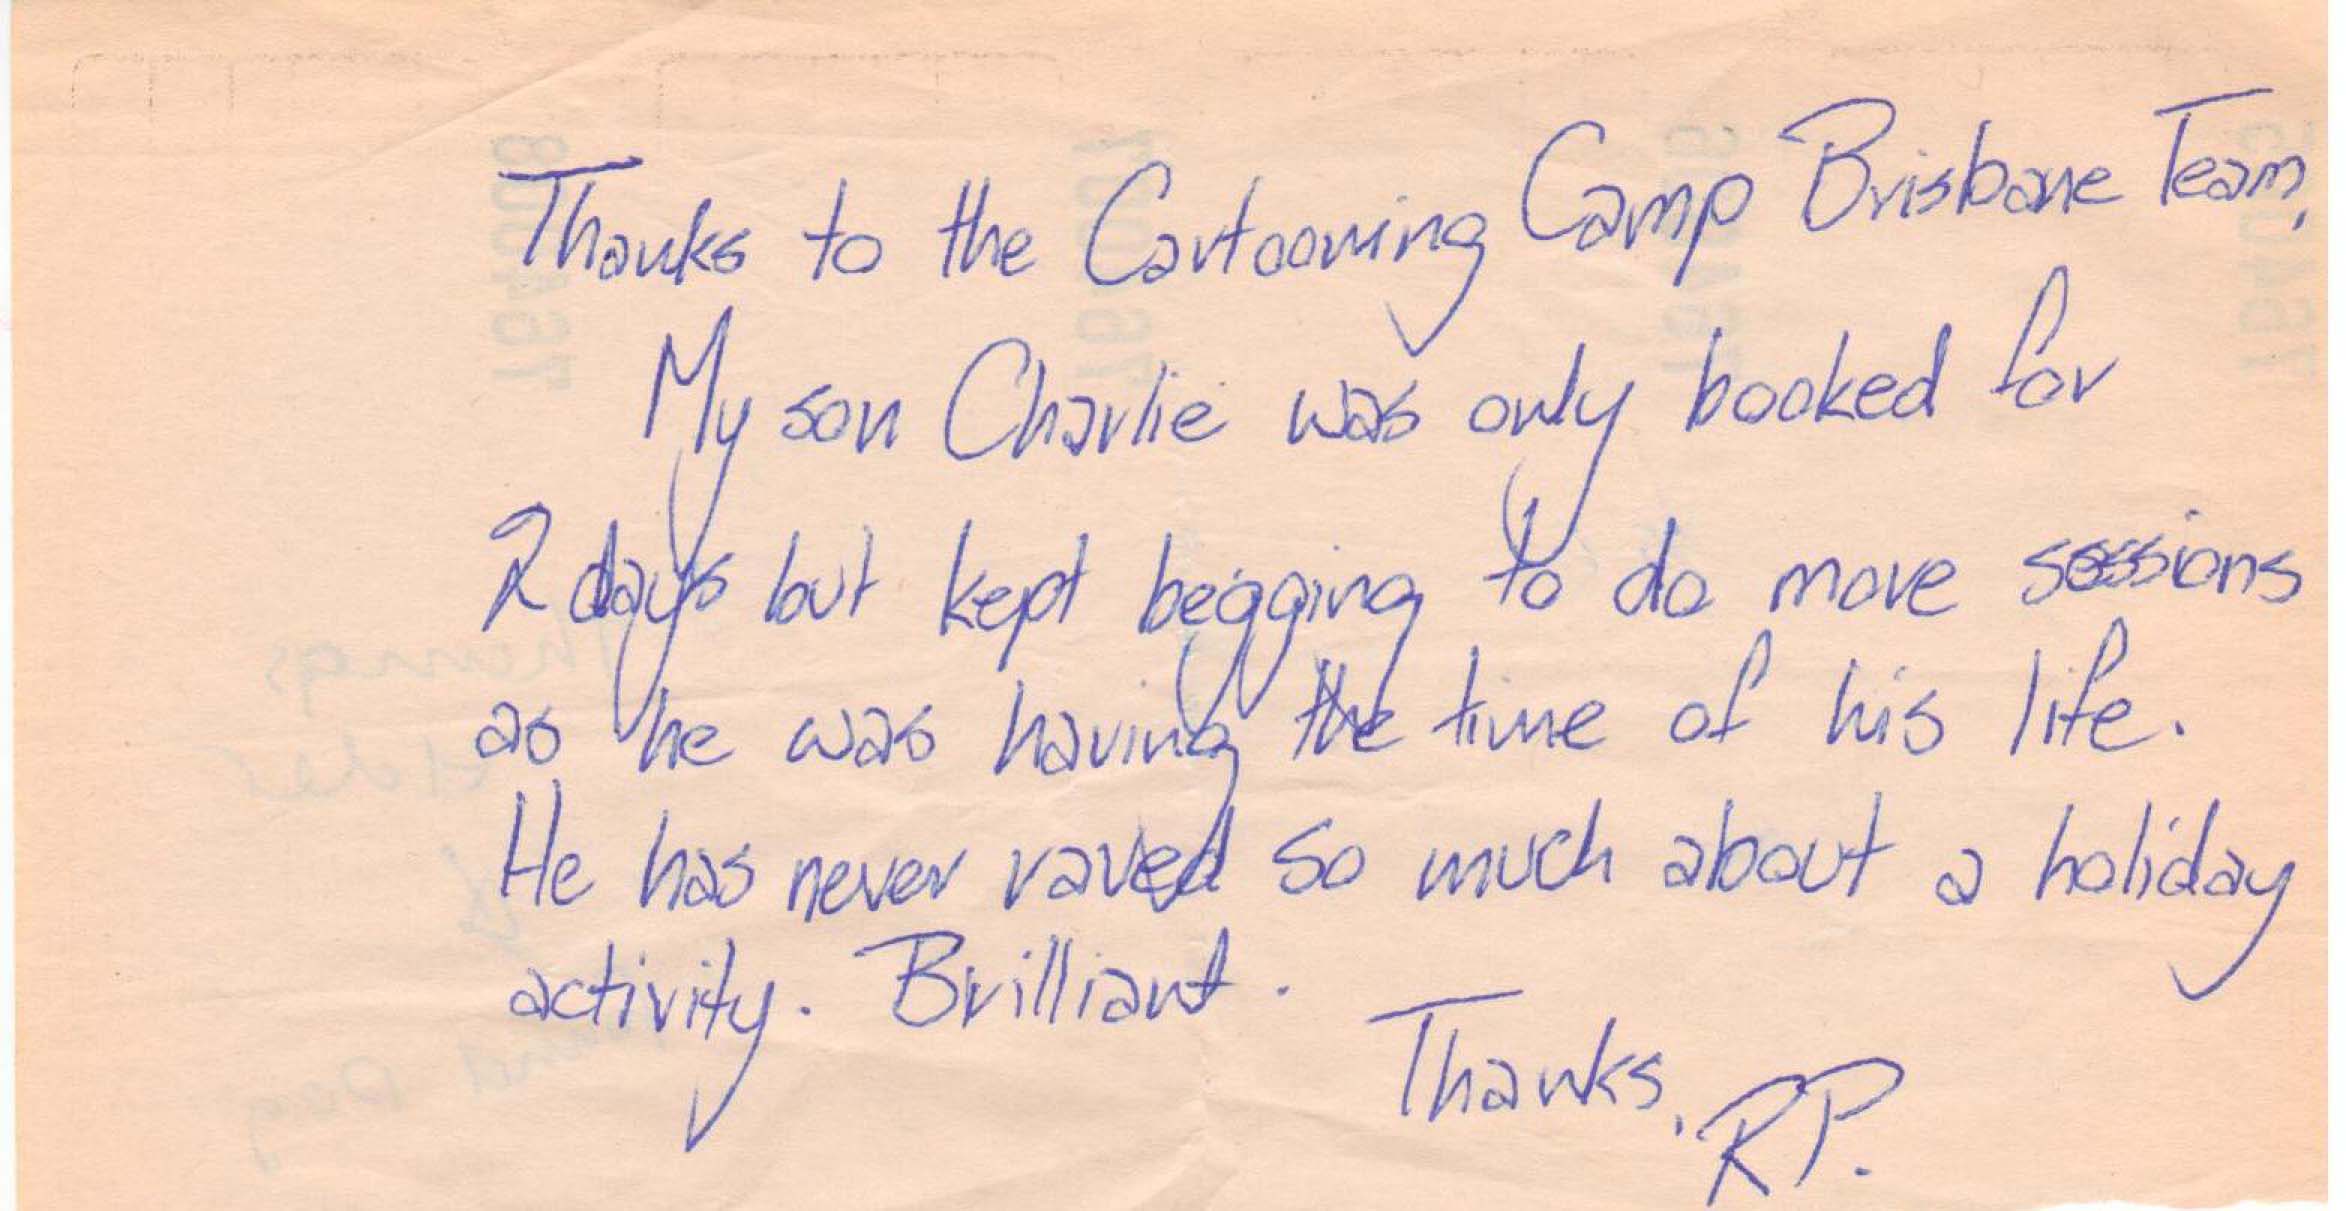 Thanks to the Cartooning Camp Brisbane Team,
My son Charlie was only booked for
2 days but kept begging to do more sessions
as he was having the time of his life.
He has never raved so much about a holiday
activity. Brilliant.
Thanks,
RP.